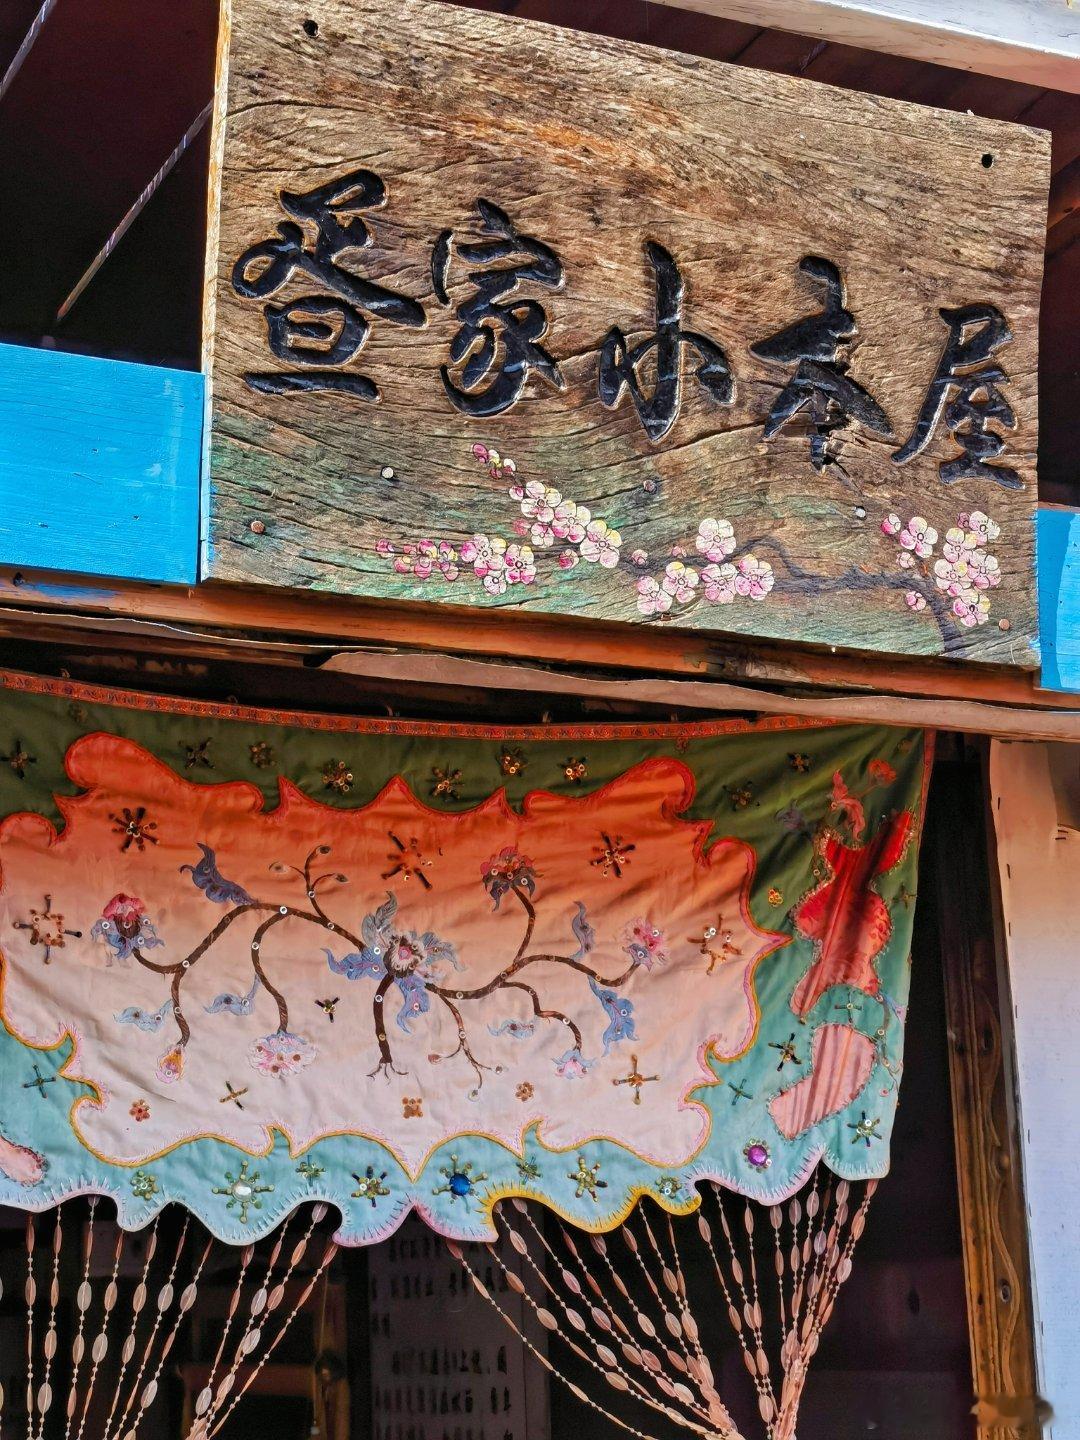 疍家小木屋